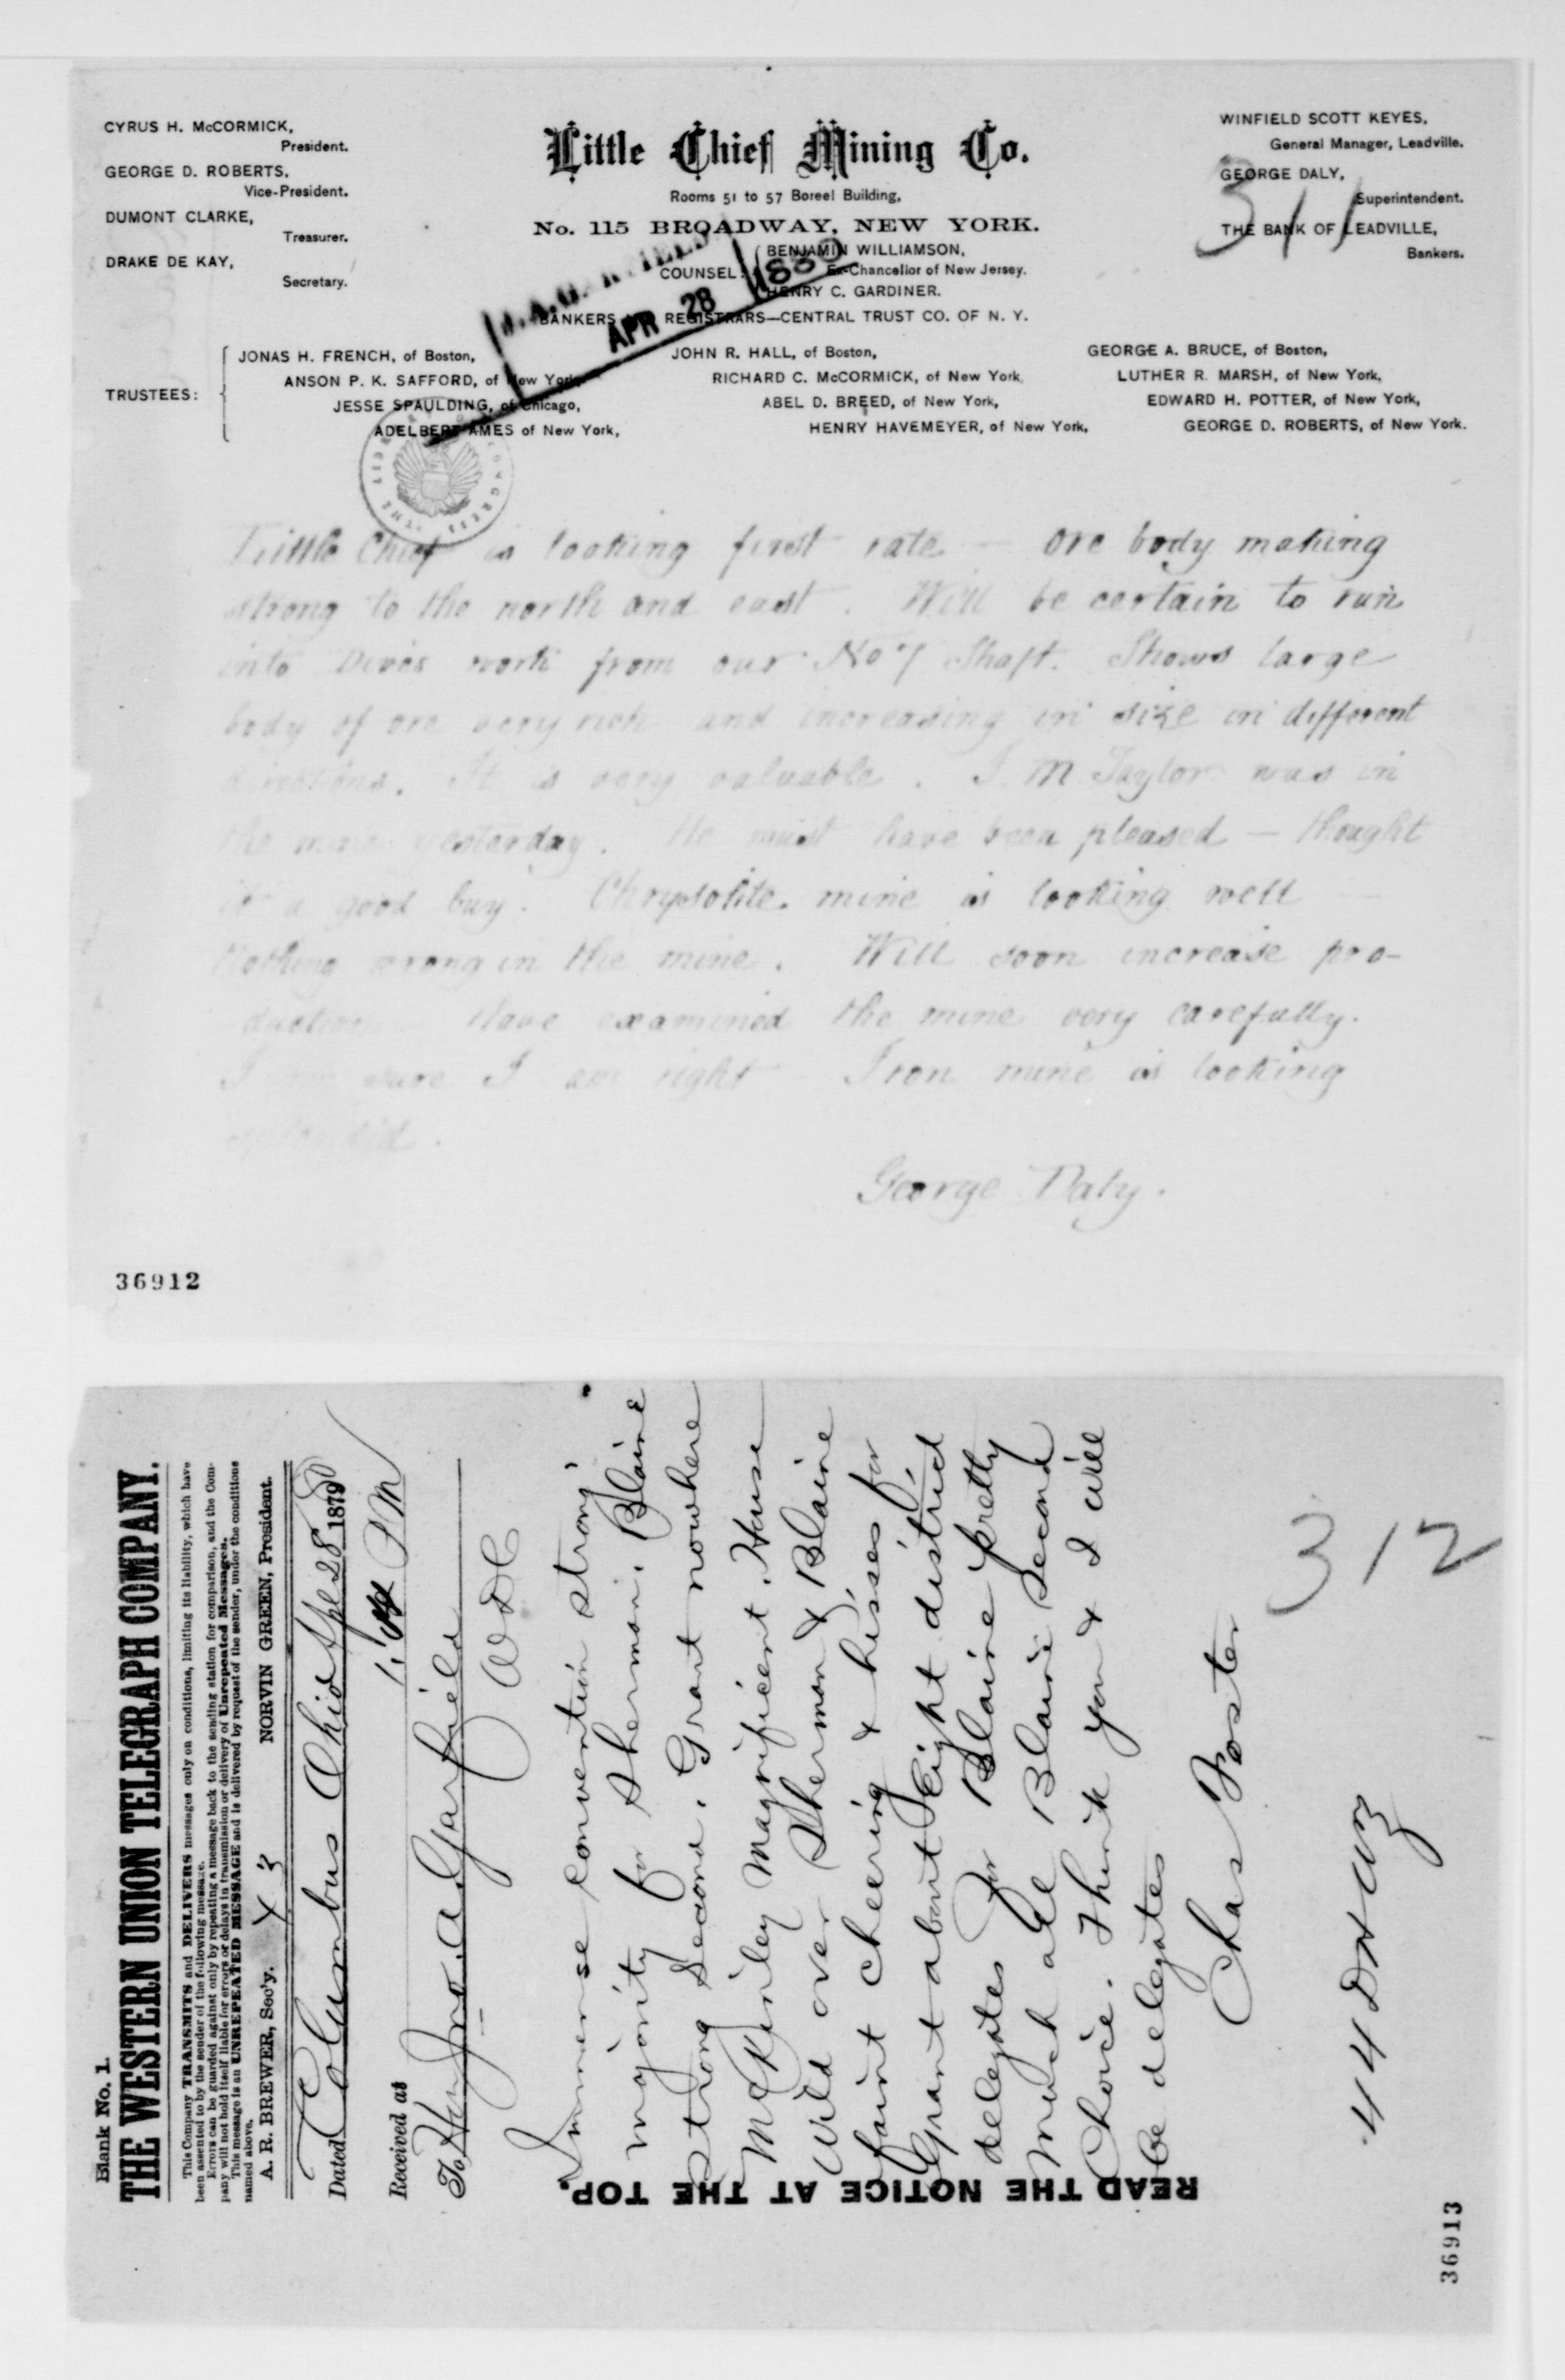 CYRUS H. McCORMICK,
President.
GEORGE D. ROBERTS,
Vice-President.
DUMONT CLARKE,
Treasurer.
DRAKE DE KAY,
Secretary.
Little Chief Mining Co.
Rooms 51 to 57 Boreel Building,
No. 115 BROADWAY, NEW YORK.
COUNSEL: BENJAMIN WILLIAMSON,
Ex-Chancellor of New Jersey.
HENRY C. GARDINER.
BANKERS REGISTRARS—CENTRAL TRUST CO. OF N. Y.
WINFIELD SCOTT KEYES,
General Manager, Leadville.
GEORGE DALY,
Superintendent.
THE BANK OF LEADVILLE,
Bankers.
311
J. A. GARFIELD
APR 28 1880
TRUSTEES:
JONAS H. FRENCH, of Boston,
ANSON P. K. SAFFORD, of New York,
JESSE SPAULDING, of Chicago,
ADELBERT AMES of New York,
JOHN R. HALL, of Boston,
RICHARD C. McCORMICK, of New York,
ABEL D. BREED, of New York,
HENRY HAVEMEYER, of New York,
GEORGE A. BRUCE, of Boston,
LUTHER R. MARSH, of New York,
EDWARD H. POTTER, of New York,
GEORGE D. ROBERTS, of New York.
Little Chief is looking first rate — ore body making
strong to the north and east. Will be certain to run
into Dives work from our No 7 Shaft. Shows large
body of ore very rich and increasing in size in different
directions. It is very valuable. I. M. Taylor was in
the mine yesterday. He must have been pleased — thought
it a good buy. Chrysolite mine is looking well —
Nothing wrong in the mine. Will soon increase pro-
duction Have examined the mine very carefully.
I am sure I am right — Iron mine is looking
splendid.
George Daly.
36912
Blank No. 1.
THE WESTERN UNION TELEGRAPH COMPANY.
This Company TRANSMITS and DELIVERS messages only on conditions, limiting its liability, which have
been assented to by the sender of the following message.
Errors can be guarded against only by repeating a message back to the sending station for comparison, and the Com-
pany will not hold itself liable for errors or delays in transmission or delivery of Unrepeated Messages.
This message is an UNREPEATED MESSAGE and is delivered by request of the sender, under the conditions
named above.
A. R. BREWER, Sec'y. NORVIN GREEN, President.
Dated Columbus Ohio Apl 28 1879 80
Received at PM
To Hon Jno. A Garfield
W D C
Immense convention strong
majority for Sherman. Blaine
strong second. Grant nowhere
McKinley magnificent. House
Wild over Sherman & Blaine
faint cheering & hisses for
Grant about Eight district
delegates for Blaine pretty
much all Blaine second
Choice. Think you & I will
be delegates
Chas Foster
44 DH
312
READ THE NOTICE AT THE TOP.
36913